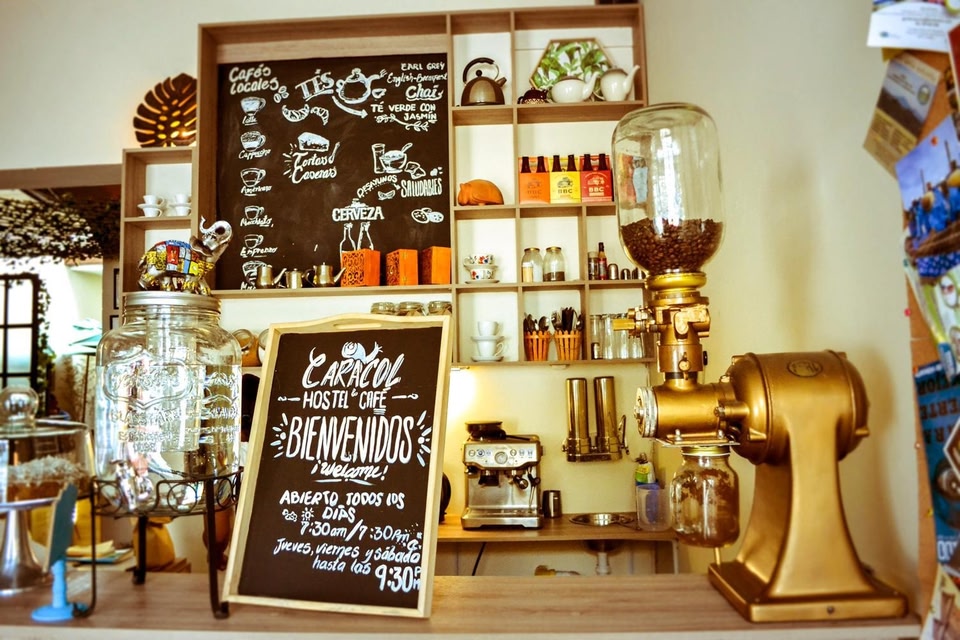 Cafés
Locales
TÉS
EARL GREY
English-Breakfast
Chai
TÉ VERDE CON
JASMÍN
Tortas
Caseras
DESAYUNOS
SALUDABLES
CERVEZA
Americano
Espresso
BBC
BBC
BBC
CARACOL
HOSTEL & CAFÉ
BIENVENIDOS
¡welcome!
ABIERTO TODOS LOS
DÍAS
7:30am/7:30Pm
Jueves, viernes y sábado
hasta las 9:30